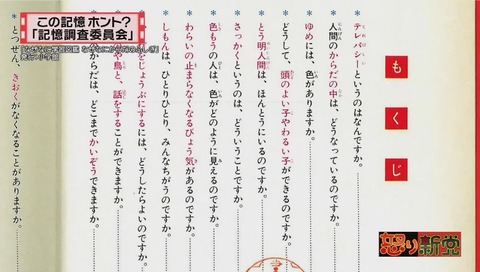 この記憶 ホント?
「記憶調査委員会」
もくじ
テレパシーというのはなんですか。
人間のからだの中は、どうなっているのですか。
ゆめには、色がありますか。
どうして、頭のよい子やわるい子ができるのですか。
とう明人間は、ほんとうにいるのですか。
さっかくというのは、どういうことですか。
色もうの人は、色がどのように見えるのですか。
わらいの止まらなくなるびょう気があるのですか。
しもんは、ひとりひとり、みんなちがうのですか。
をじょうぶにするには、どうしたらよいのですか。
や鳥と、話をすることができますか。
からだは、どこまでかいぞうできますか。
とつぜん、きおくがなくなることがありますか。
怒り新党